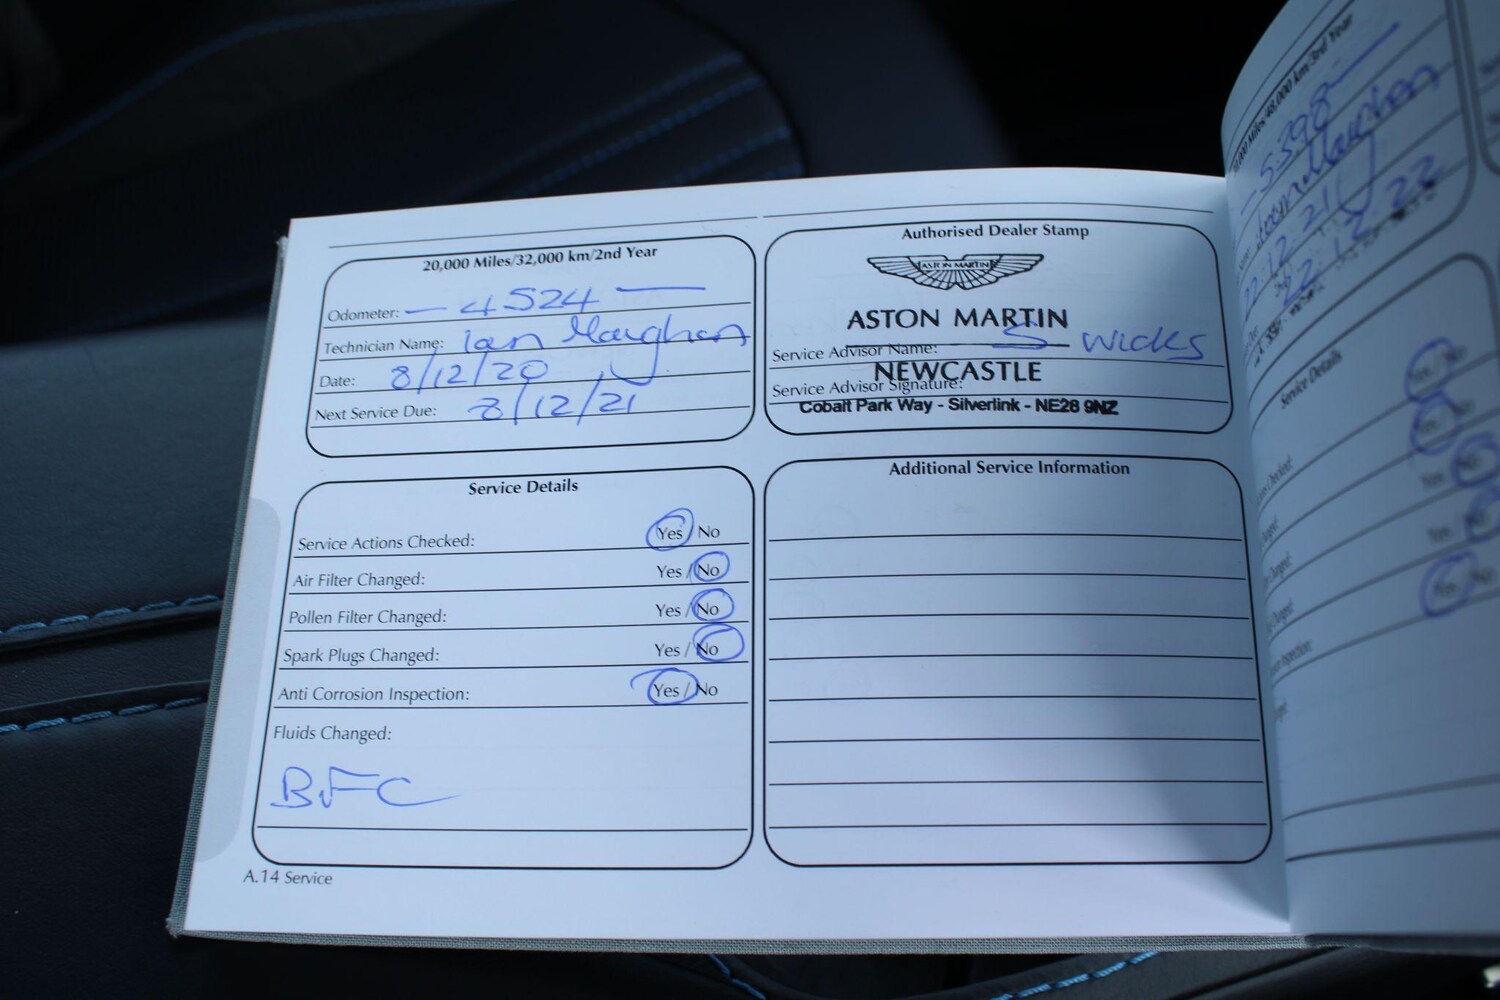 20,000 Miles/32,000 km/2nd Year
Odometer: — 4524 —
Technician Name: Ian Maughan
Date: 8/12/20
Next Service Due: 8/12/21
Authorised Dealer Stamp
ASTON MARTIN
ASTON MARTIN
Service Advisor Name: S Wicks
NEWCASTLE
Service Advisor Signature:
Cobalt Park Way - Silverlink - NE28 9NZ
Service Details
Service Actions Checked: Yes / No
Air Filter Changed: Yes / No
Pollen Filter Changed: Yes / No
Spark Plugs Changed: Yes / No
Anti Corrosion Inspection: Yes / No
Fluids Changed:
BFC
Additional Service Information
A.14 Service
Miles/48,000 km/3rd Year
5398
Maughan
22.12.21
Service Details
Checked: Yes / No
Yes / No
Yes / No
Yes / No
Inspection: Yes / No